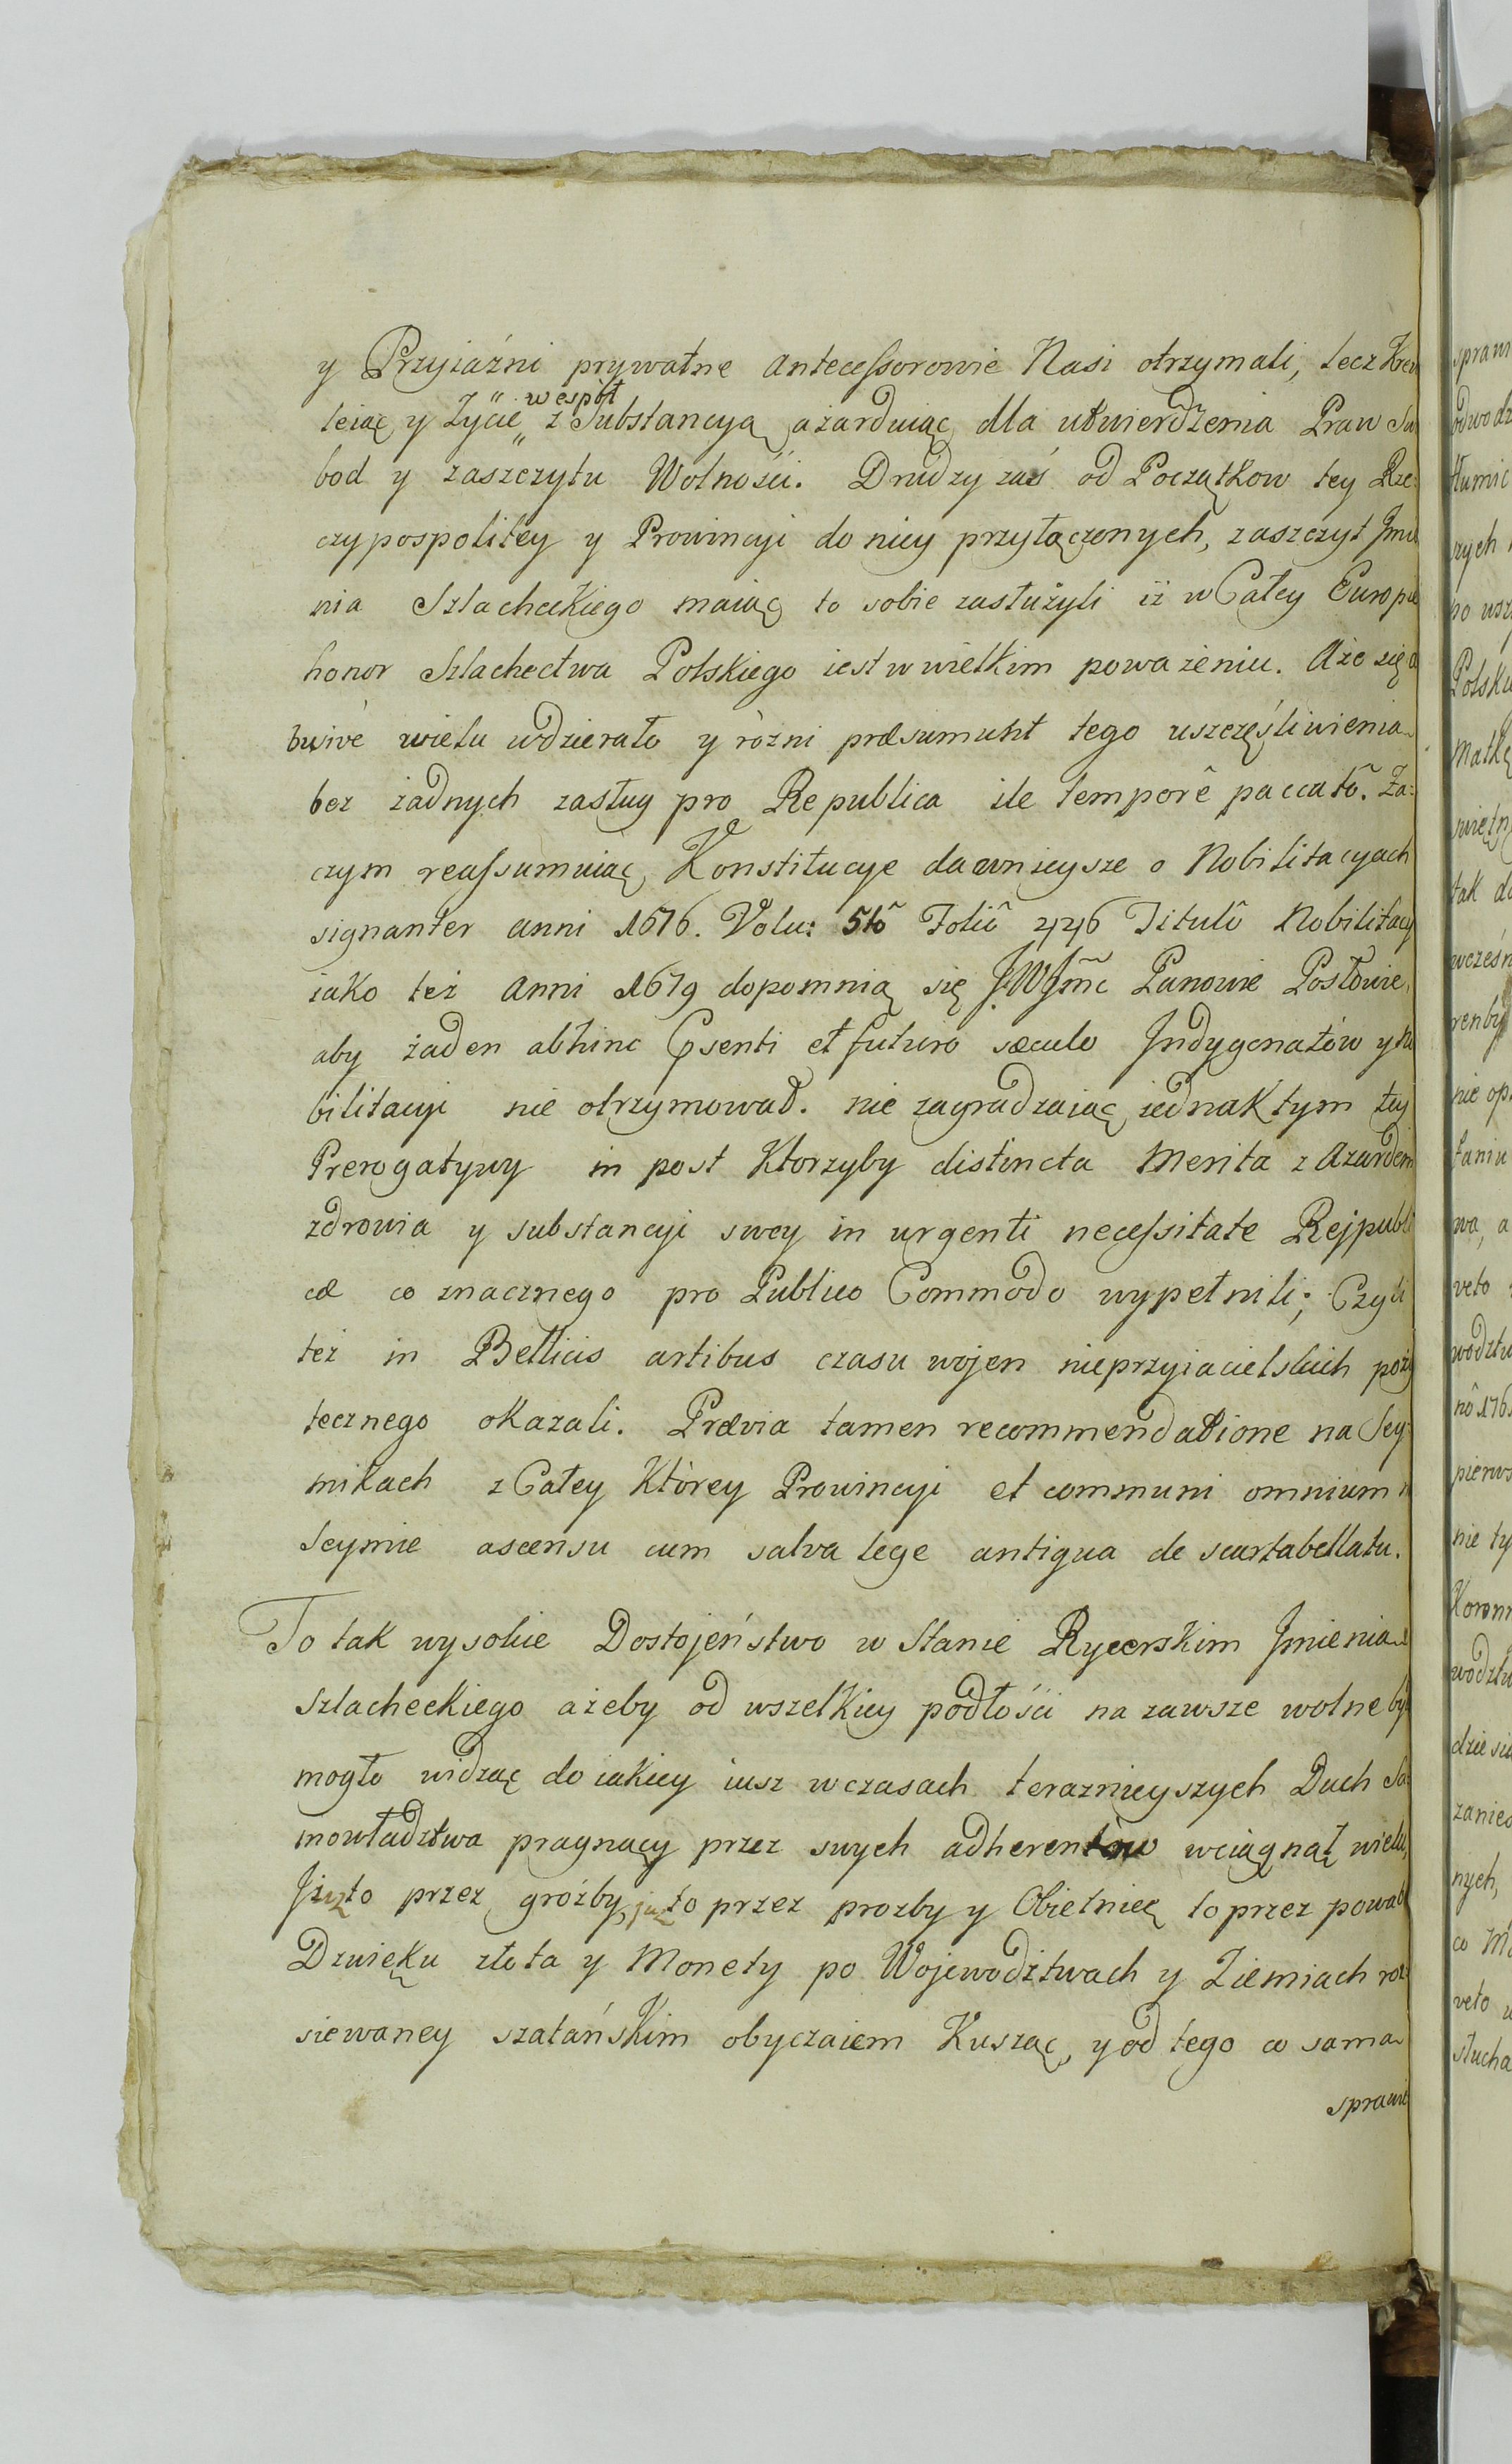 y Przyiaźni prywatne Antecessorowie Nasi otrzymali, lecz Krew
wespół
leiąc y Zycie z Substancyą ażarduiąc dla utwierdzenia Praw Swo
bod y zaszczytu Wolności. Drudzy zaś od Początkow tey Rze:
czypospolitey y Prowincyi do niey przyłączonych, zaszczyt Jmie
nia Szlacheckiego maiąc to sobie zasłużyli iż w Całey Europie
honor Szlachectwa Polskiego iest w wielkim poważeniu. Aże się a
busivè wielu wdzierało y różni præsumunt tego uszczęśliwienia
bez żadnych zasług pro Republica ile temporê paccatô. Za:
czym reassumuiąc Konstitucye dawnieysze o Nobilitacyach
signanter anni 1676. Volu: 5tô Foliô 446 Titulô Nobilitacy
iako też Anni 1679 dopomnią się JWJmc Panowie Posłowie,
aby żaden abhinc psenti et futuro sæculo Jndygenatów y No
bilitacyi nie otrzymował. nie zagradzaiąc iednak tym tey
Prerogatywy in post Ktorzyby distincta Merita z Azardem
zdrowia y substancyi swey in urgenti necessitate Rejpubli
cæ co znacznego pro Publico Commodo wypełnili; Czyli
też in Bellicis artibus czasu wojen nieprzyiacielskich poży
tecznego okazali. Prævia tamen recommendatione na Sey:
mikach z Całey Którey Prowincyi et communi omnium n
Seymie ascensu cum salva lege antiqua de scartabellatu.
To tak wysokie Dostojeństwo w Stanie Rycerskim Jmienia
szlacheckiego ażeby od wszelkiey podłości na zawsze wolne być
mogło widząc do iakiey iusz w czasach teraznieyszych Duch Sa:
mowładztwa pragnący przez swych adherentów wciągnął wielu,
Juz to przez groźby, juz to przez prozby y Obietnicę to przez powab
Dzwięku złota y Monety po Wojewodztwach y Ziemiach roz
siewaney szatańskim obyczaiem Kusząc, y od tego co sama
sprawie